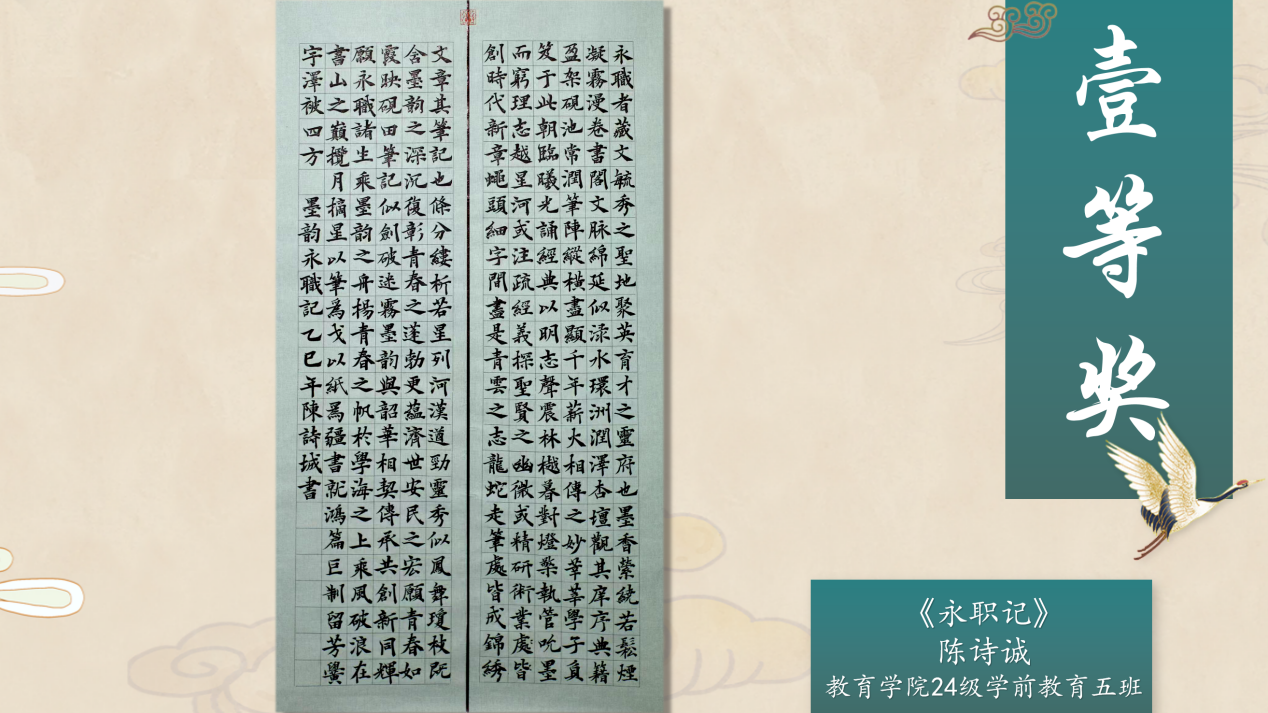 永職者藏文毓秀之聖地聚英育才之靈府也墨香縈繞若鬆煙
凝霧漫卷書閣文脈綿延似淥水環洲潤澤杏壇觀其庠序典籍
盈架硯池常潤筆陣縱橫盡顯千年薪火相傳之妙莘莘學子負
笈于此朝臨曦光誦經典以明志聲震林樾暮對燈檠執管吮墨
而窮理志越星河或注疏經義探聖賢之幽微或精研術業處皆
創時代新章蠅頭細字間盡是青雲之志龍蛇走筆處皆成錦綉
文章其筆記也條分縷析若星列河漢道勁靈秀似鳳舞瓊枝既
含墨韵之深沉復彰青春之蓬勃更蘊濟世安民之宏願青春如
霞映硯田筆記似劍破迷霧墨韵與韶華相契傳承共創新同輝
願永職諸生乘墨韵之舟揚青春之帆於學海之上乘風破浪在
書山之巔攬月摘星以筆爲戈以紙爲疆書就鴻篇巨制留芳黌
字澤被四方 墨韵永職記乙巳年陳詩城書
壹等奖
《永职记》
陈诗诚
教育学院24级学前教育五班